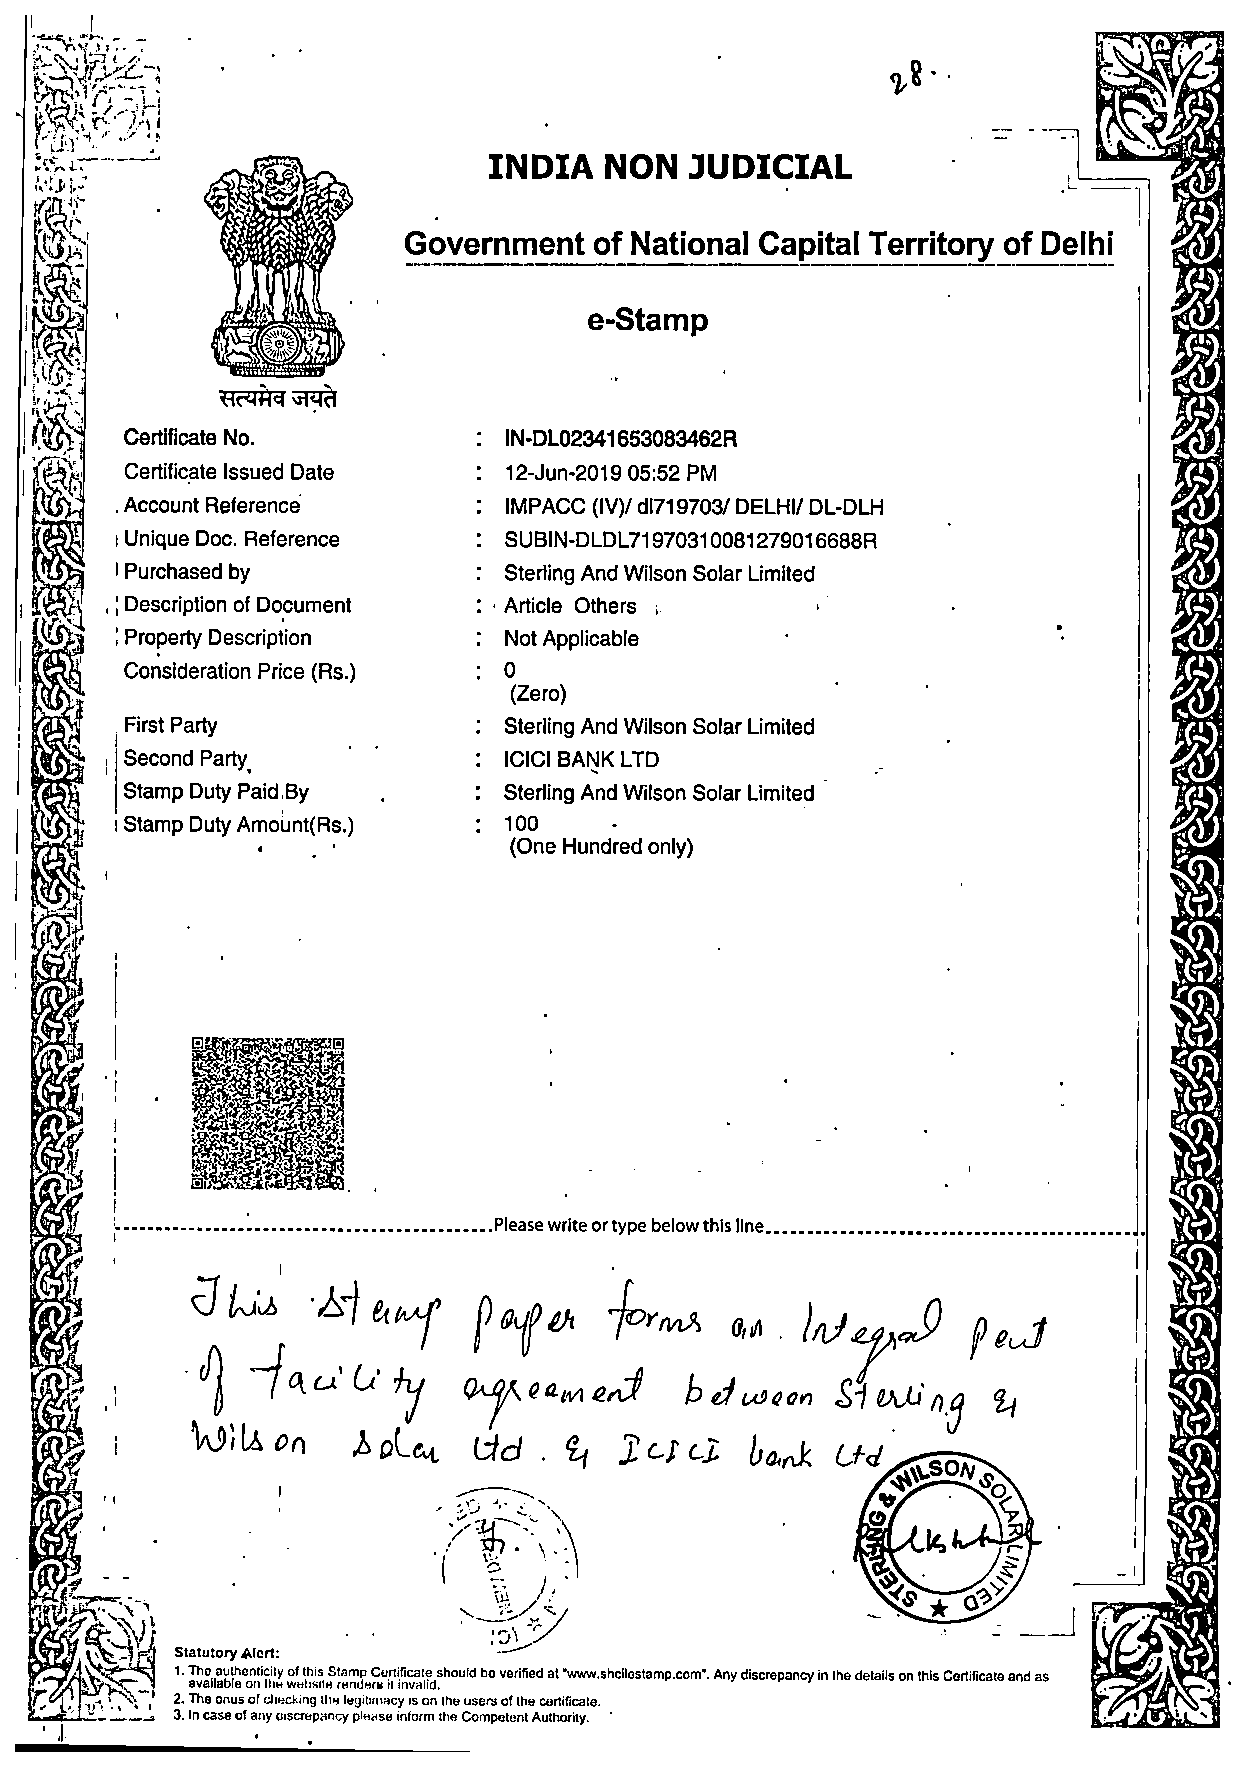 28
INDIA NON JUDICIAL
Government of National Capital Territory of Delhi
e-Stamp
सत्यमेव जयते
Certificate No. : IN-DL02341653083462R
Certificate Issued Date : 12-Jun-2019 05:52 PM
Account Reference : IMPACC (IV)/ dl719703/ DELHI/ DL-DLH
Unique Doc. Reference : SUBIN-DLDL71970310081279016688R
Purchased by : Sterling And Wilson Solar Limited
Description of Document : Article Others
Property Description : Not Applicable
Consideration Price (Rs.) : 0
(Zero)
First Party : Sterling And Wilson Solar Limited
Second Party : ICICI BANK LTD
Stamp Duty Paid By : Sterling And Wilson Solar Limited
Stamp Duty Amount(Rs.) : 100
(One Hundred only)
Please write or type below this line
This stamp paper forms an Integral part
of facility agreement between Sterling &
Wilson Solar Ltd. & ICICI bank Ltd
STERLING & WILSON SOLAR LIMITED
Statutory Alert:
1. The authenticity of this Stamp Certificate should be verified at "www.shcilestamp.com". Any discrepancy in the details on this Certificate and as
available on the website renders it invalid.
2. The onus of checking the legitimacy is on the users of the certificate.
3. In case of any discrepancy please inform the Competent Authority.